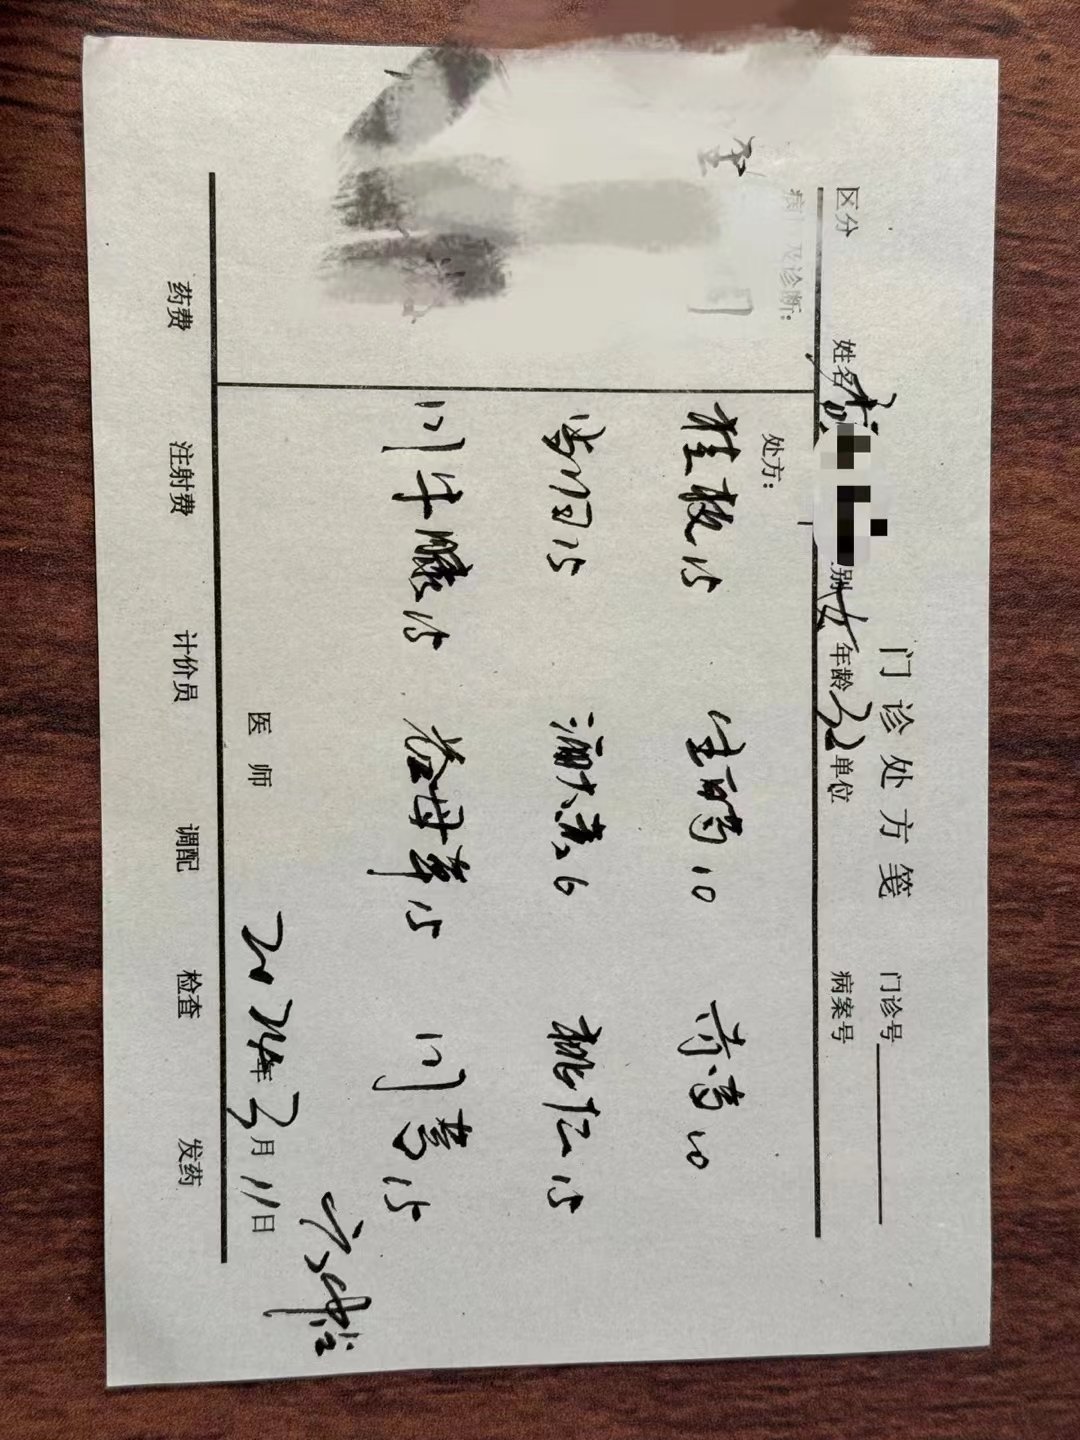 门诊处方笺 门诊号
区分 姓名 别女 年龄32 单位 病案号
及诊断: 处方:
桂枝15 生
10
当归15 酒大黄6 桃仁15
川牛膝15 益母草15 川芎15
医师 2024年3月11日
药费 注射费 计价员 调配 检查 发药